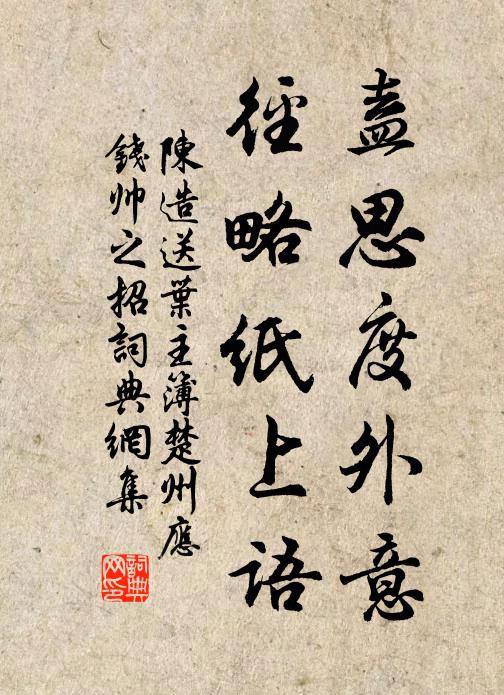 盍思度外意
徑略紙上語
陳造送葉主簿楚州應
錢帥之招詞典網集
詞典網印